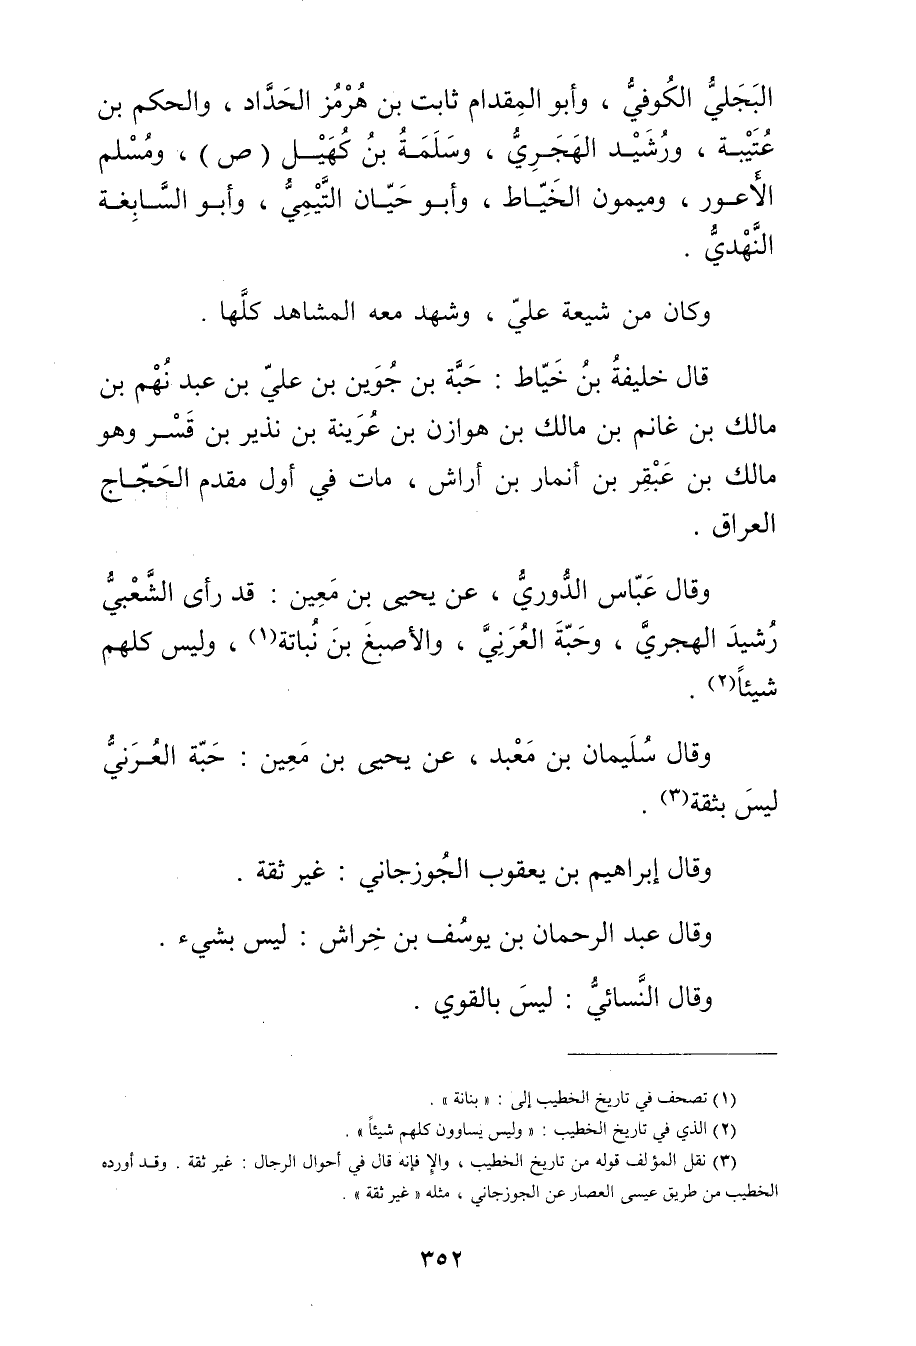 البَجَليُّ الكُوفيُّ ، وأبو المِقدام ثابت بن هُرْمُز الحَدَّاد ، والحكم بن
عُتَيْبة ، ورُشَيْد الهَجَرِيُّ ، وسَلَمَةُ بنُ كُهَيْل ( ص ) ، ومُسْلم
الأَعور ، وميمون الخَيّاط ، وأبو حَيّان التَّيْمِيُّ ، وأبو السَّابِغة
النَّهْديُّ .
وكان من شيعة عليّ ، وشهد معه المشاهد كلَّها .
قال خليفةُ بنُ خَيّاط : حَبَّة بن جُوَين بن عليّ بن عبد نُهْم بن
مالك بن غانم بن مالك بن هوازن بن عُرَينة بن نذير بن قَسْر وهو
مالك بن عَبْقِر بن أنمار بن أراش ، مات في أول مقدم الحَجّاج
العراق .
وقال عَبّاس الدُّوريُّ ، عن يحيى بن مَعِين : قد رأى الشَّعْبيُّ
رُشيدَ الهجريَّ ، وحَبّةَ العُرَنِيَّ ، والأصبغَ بنَ نُباتة(١) ، وليس كلهم
شيئاً(٢) .
وقال سُلَيمان بن مَعْبد ، عن يحيى بن مَعِين : حَبّة العُرَنيُّ
ليسَ بثقة(٣) .
وقال إبراهيم بن يعقوب الجُوزجاني : غير ثقة .
وقال عبد الرحمان بن يوسُف بن خِراش : ليس بشيء .
وقال النَّسائيُّ : ليسَ بالقوي .
(١) تصحف في تاريخ الخطيب إلى : « بنانة » .
(٢) الذي في تاريخ الخطيب : « وليس يساوون كلهم شيئاً » .
(٣) نقل المؤلف قوله من تاريخ الخطيب ، والا فإنه قال في أحوال الرجال : غير ثقة . وقد أورده
الخطيب من طريق عيسى العصار عن الجوزجاني ، مثله « غير ثقة » .
٣٥٢